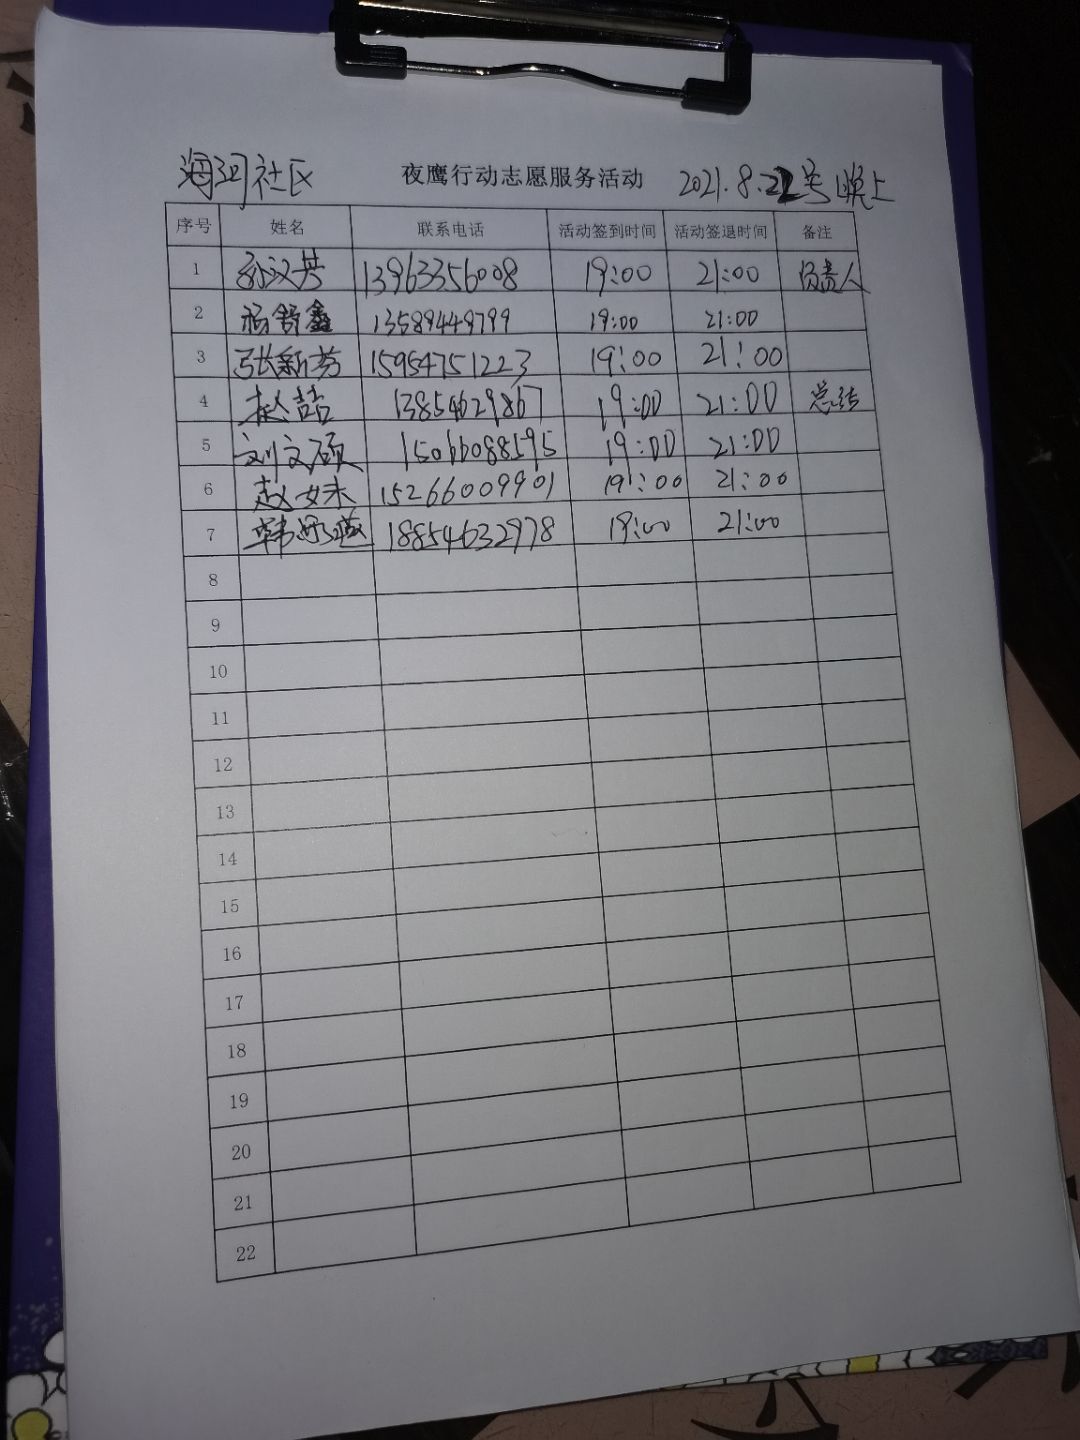 海河社区 夜鹰行动志愿服务活动 2021.8.22号晚上
序号 姓名 联系电话 活动签到时间 活动签退时间 备注
1 孙汉芳 13963356008 19:00 21:00 负责人
2 杨舒鑫 13589449799 19:00 21:00
3 张新芬 15954751223 19:00 21:00
4 13854629867 19:00 21:00 总结
5 刘文硕 15066088595 19:00 21:00
6 赵妹 15266009901 19:00 21:00
7 韩 18854632978 19:00 21:00
8
9
10
11
12
13
14
15
16
17
18
19
20
21
22